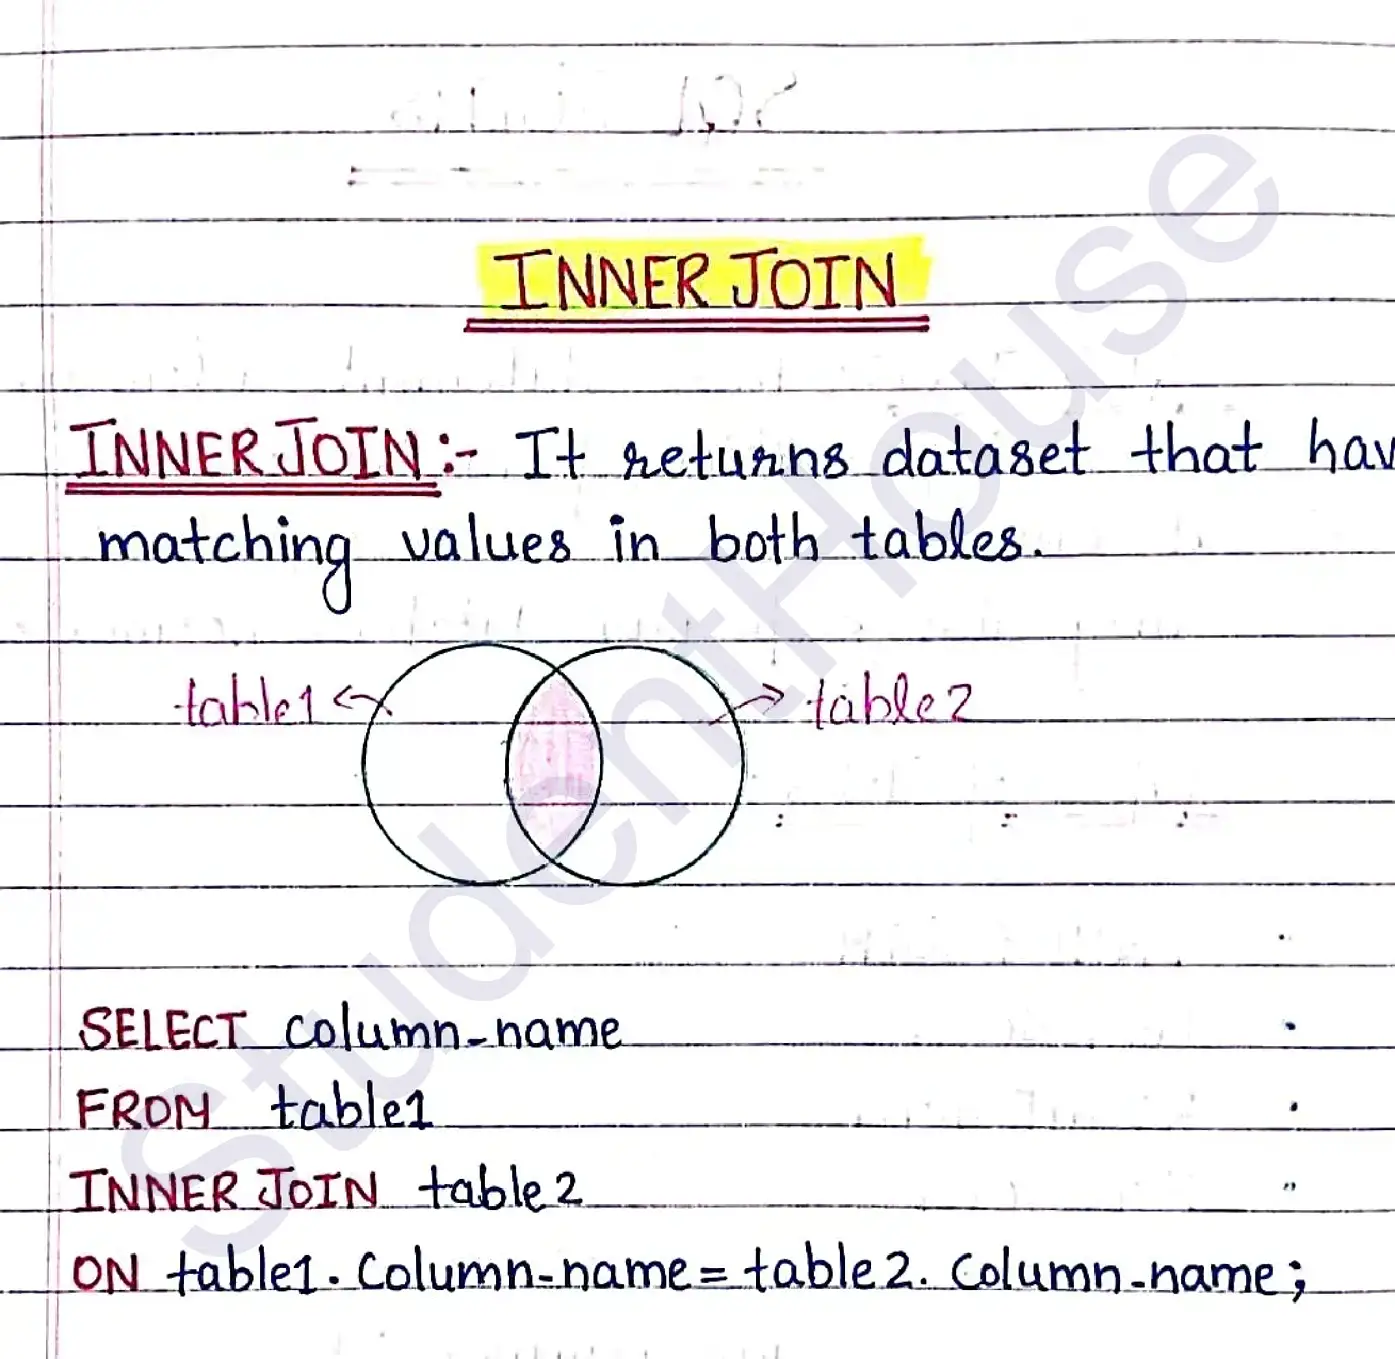 INNER JOIN
INNER JOIN :- It returns dataset that hav
matching values in both tables.
table1
table2
SELECT column_name
FROM table1
INNER JOIN table2
ON table1.column_name = table2.column_name;
StudentHouse